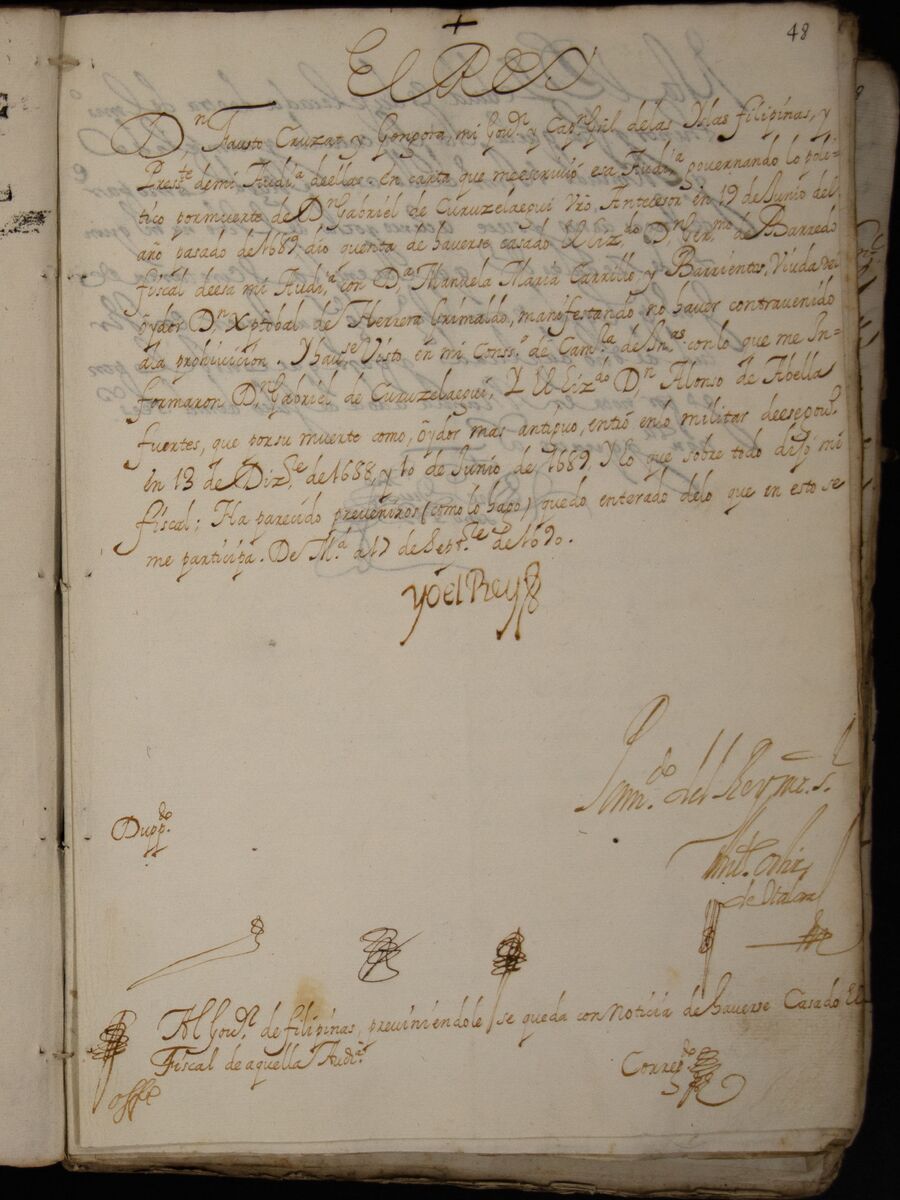 48
El Rey
Dn Fausto Cruzat y Gongora, mi Govr. y Capn Gral delas Yslas filipinas, y
Presste demi Audia deellas. En carta que meescrivió esa Audia governando lo poli=
tico pormuerte de Dn Gabriel de Curuzelaegui Vro. Antecesor en 19 de Junio del
año pasado de 1689 dio quenta de haverse casado el Lizdo Dn Germo de Barredo
fiscal deesa mi Audia con Da Manuela Maria Carrillo y Barrientos, Viuda del
oydor Dn Xptobal de Herrera Grimaldo, manifestando no haver contravenido
ala prohivicion. Y havse Visto en mi Conso de Camla de Inas con lo que me In=
formaron Dn Gabriel de Curuzelaegui, Y el Lizdo Dn Alonso de Abella
fuertes, que porsu muerte como, oydor mas antiguo, entró enlo militar deesegovno
en 13 de Dizre de 1688, y 10 de Junio de 1689. Y lo que sobre todo dijo mi
fiscal; Ha parecido preveniros (como lo hago) quedo enterado delo que en esto se
me participa. De Md a 17 de Septre de 1690.
Yo el Rey
Pormdo del Rey nro. sr.
Anto. Ortiz
de Otalora
Duppdo
Al Govr. de filipinas, previniendole se queda con Noticia de haverse Casado El
Fiscal de aquella Audia
Corregdo
offe